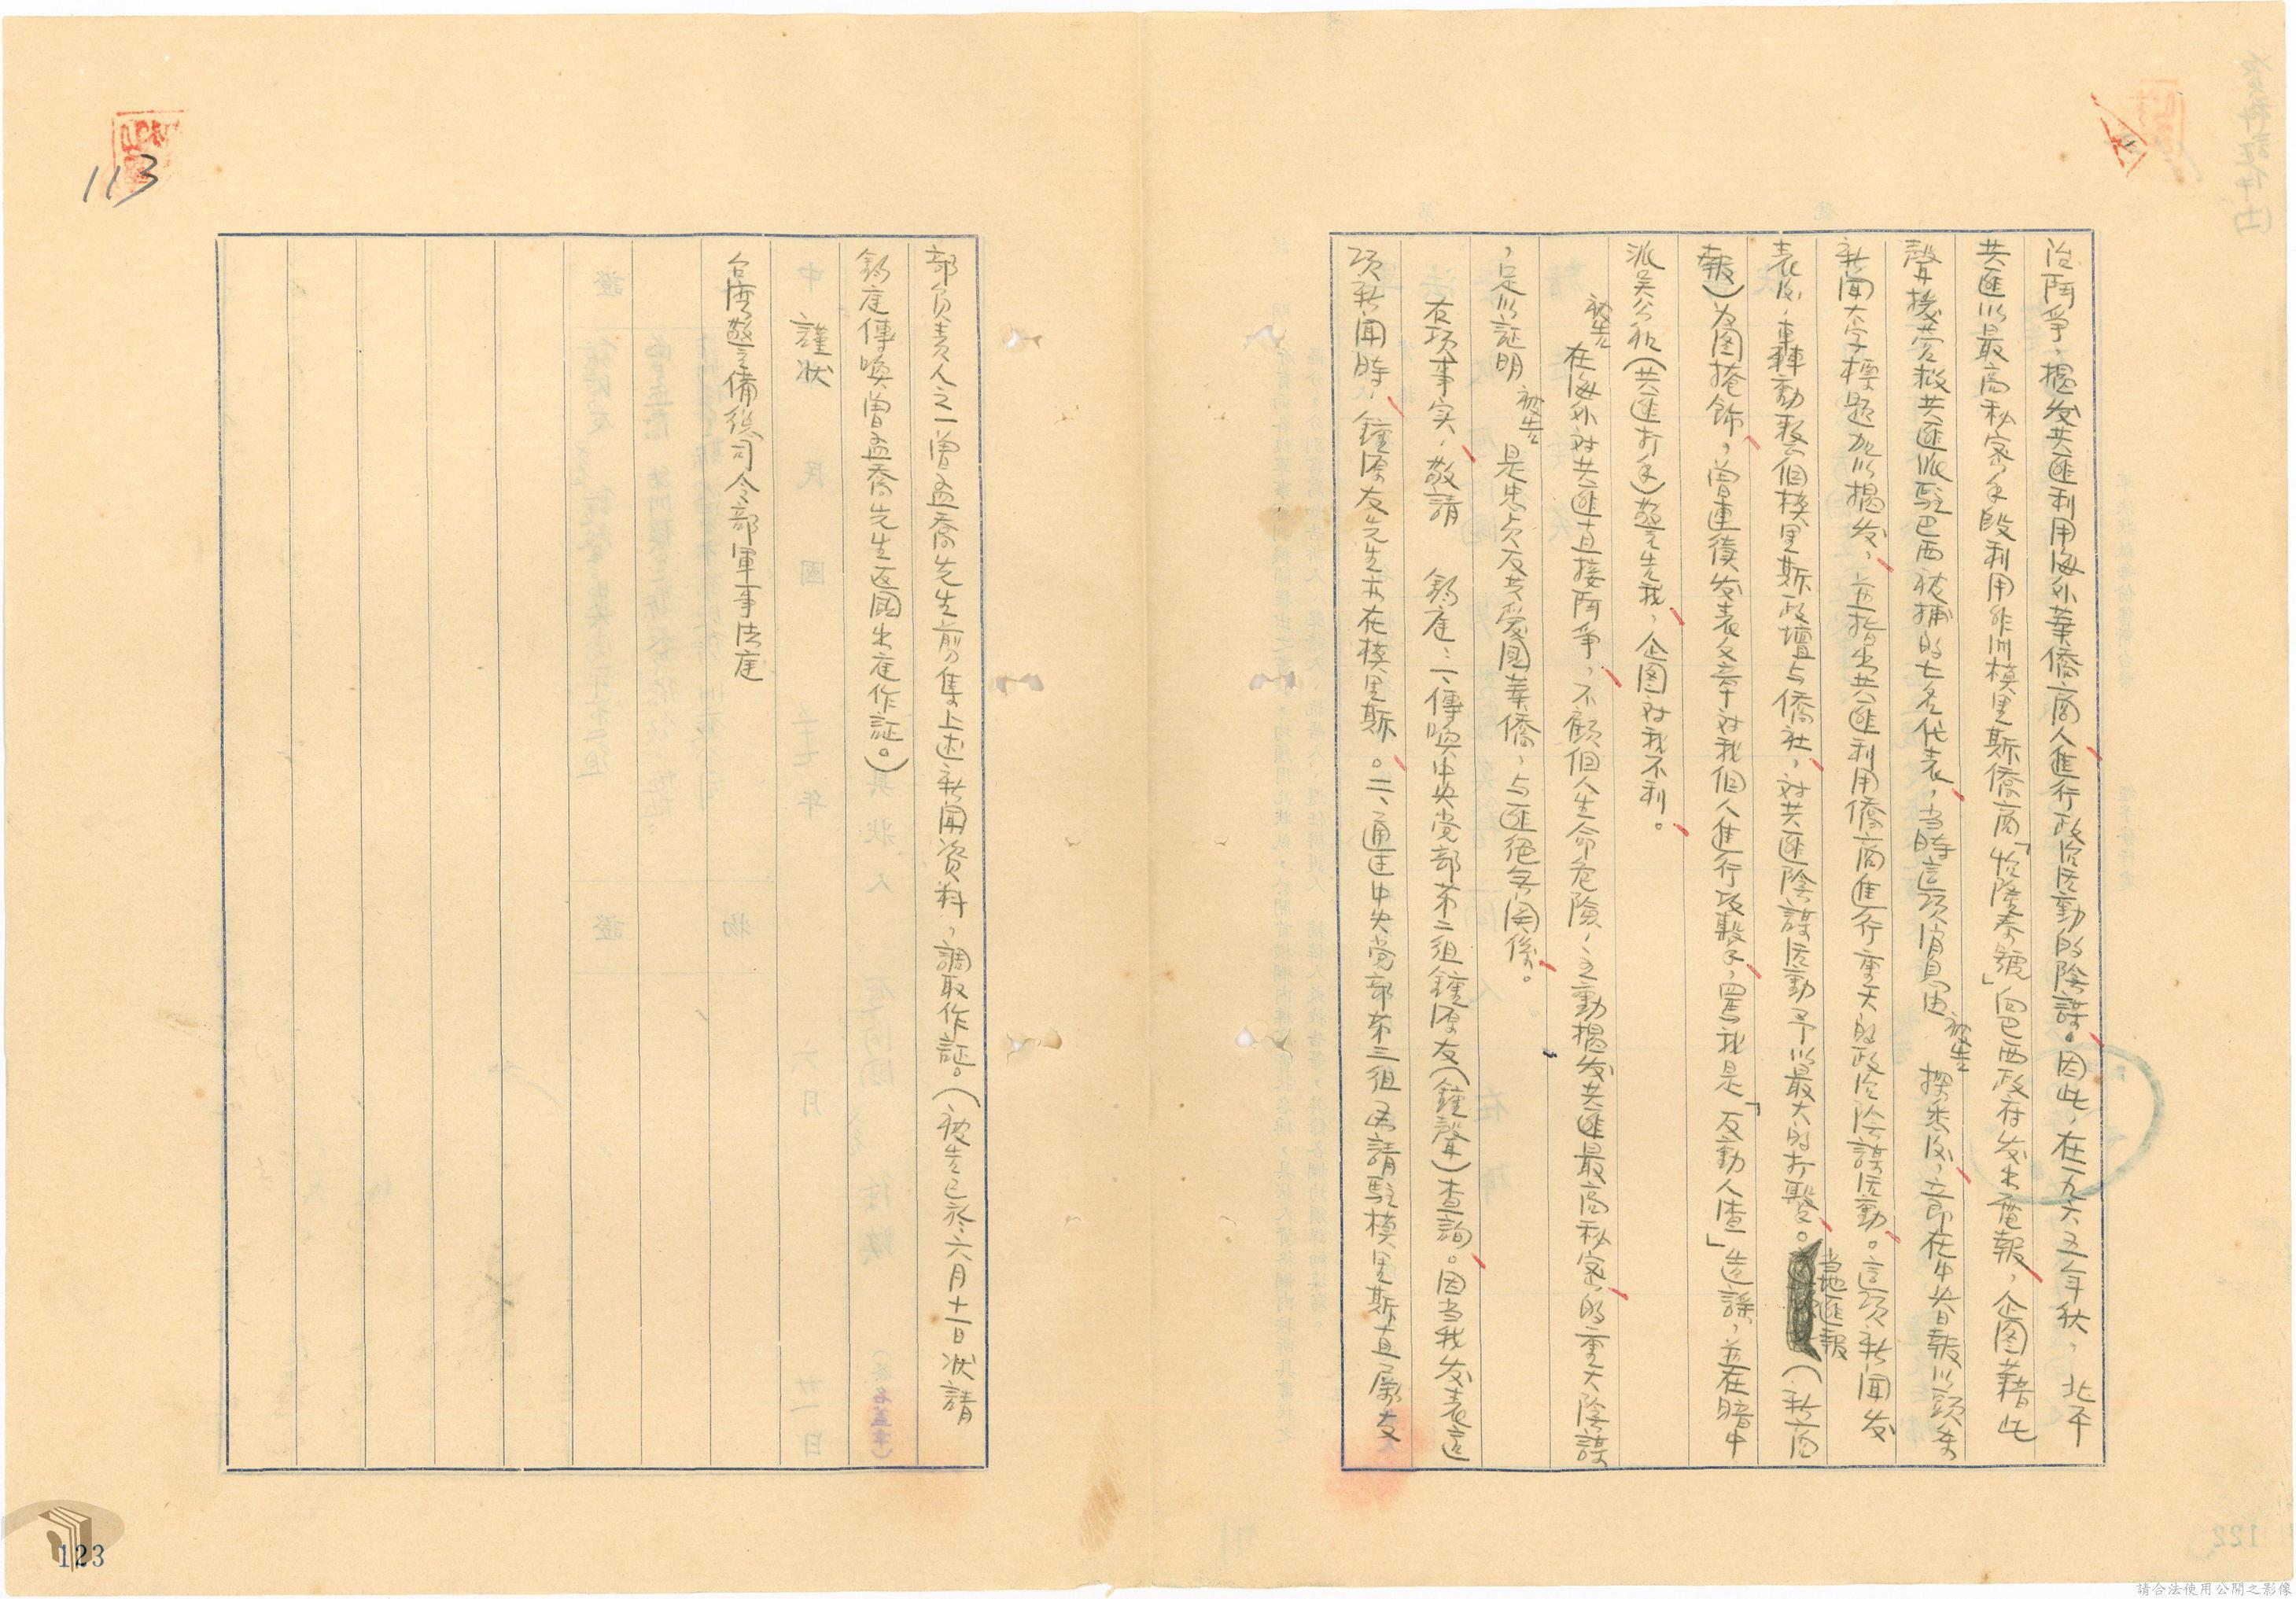 治鬥爭，揭发共匪利用海外華僑商人進行政治活動的陰謀。因此，在一九六五年秋，北平
共匪以最高秘密手段利用非洲模里斯僑商「怡隆泰號」向巴西政府发出電報，企图藉此
聲援营救共匪派駐巴西被捕的七名代表，当時這項消息由被告探悉後，立即在中央日報以頭条
新闻大字標題加以揭发，並指出共匪利用僑商進行重大的政治陰謀活動。這項新闻发
表後，轟動整個模里斯政壇与僑社，对共匪陰謀活動予以最大的打擊。当地匪報(新商
報)为图掩飾，曾連續发表文章对我個人進行攻擊，罵我是「反動人渣」造謠，並在暗中
派吴公私(共匪打手)警告我，企图对我不利。
被告在海外对共匪直接鬥爭，不顧個人生命危險，主動揭发共匪最高秘密的重大陰謀
，足以証明被告是忠贞反共爱國華僑，与匪绝无関係。
右项事实，敬請 鈞庭：一、傳喚中央党部第三組鐘源友(鐘聲)查詢。因当我发表這
項新闻時，鐘源友先生亦在模里斯。二、通匡中央党部第三組函請駐模里斯直属支
部负责人之一曾孟喬先生剪集上述新闻資料，調取作証。(被告已於六月十一日状請
鈞庭傳喚曾孟喬先生返國出庭作証。)
謹状
台湾警备總司令部軍事法庭
113
123
122
請合法使用公開之影像